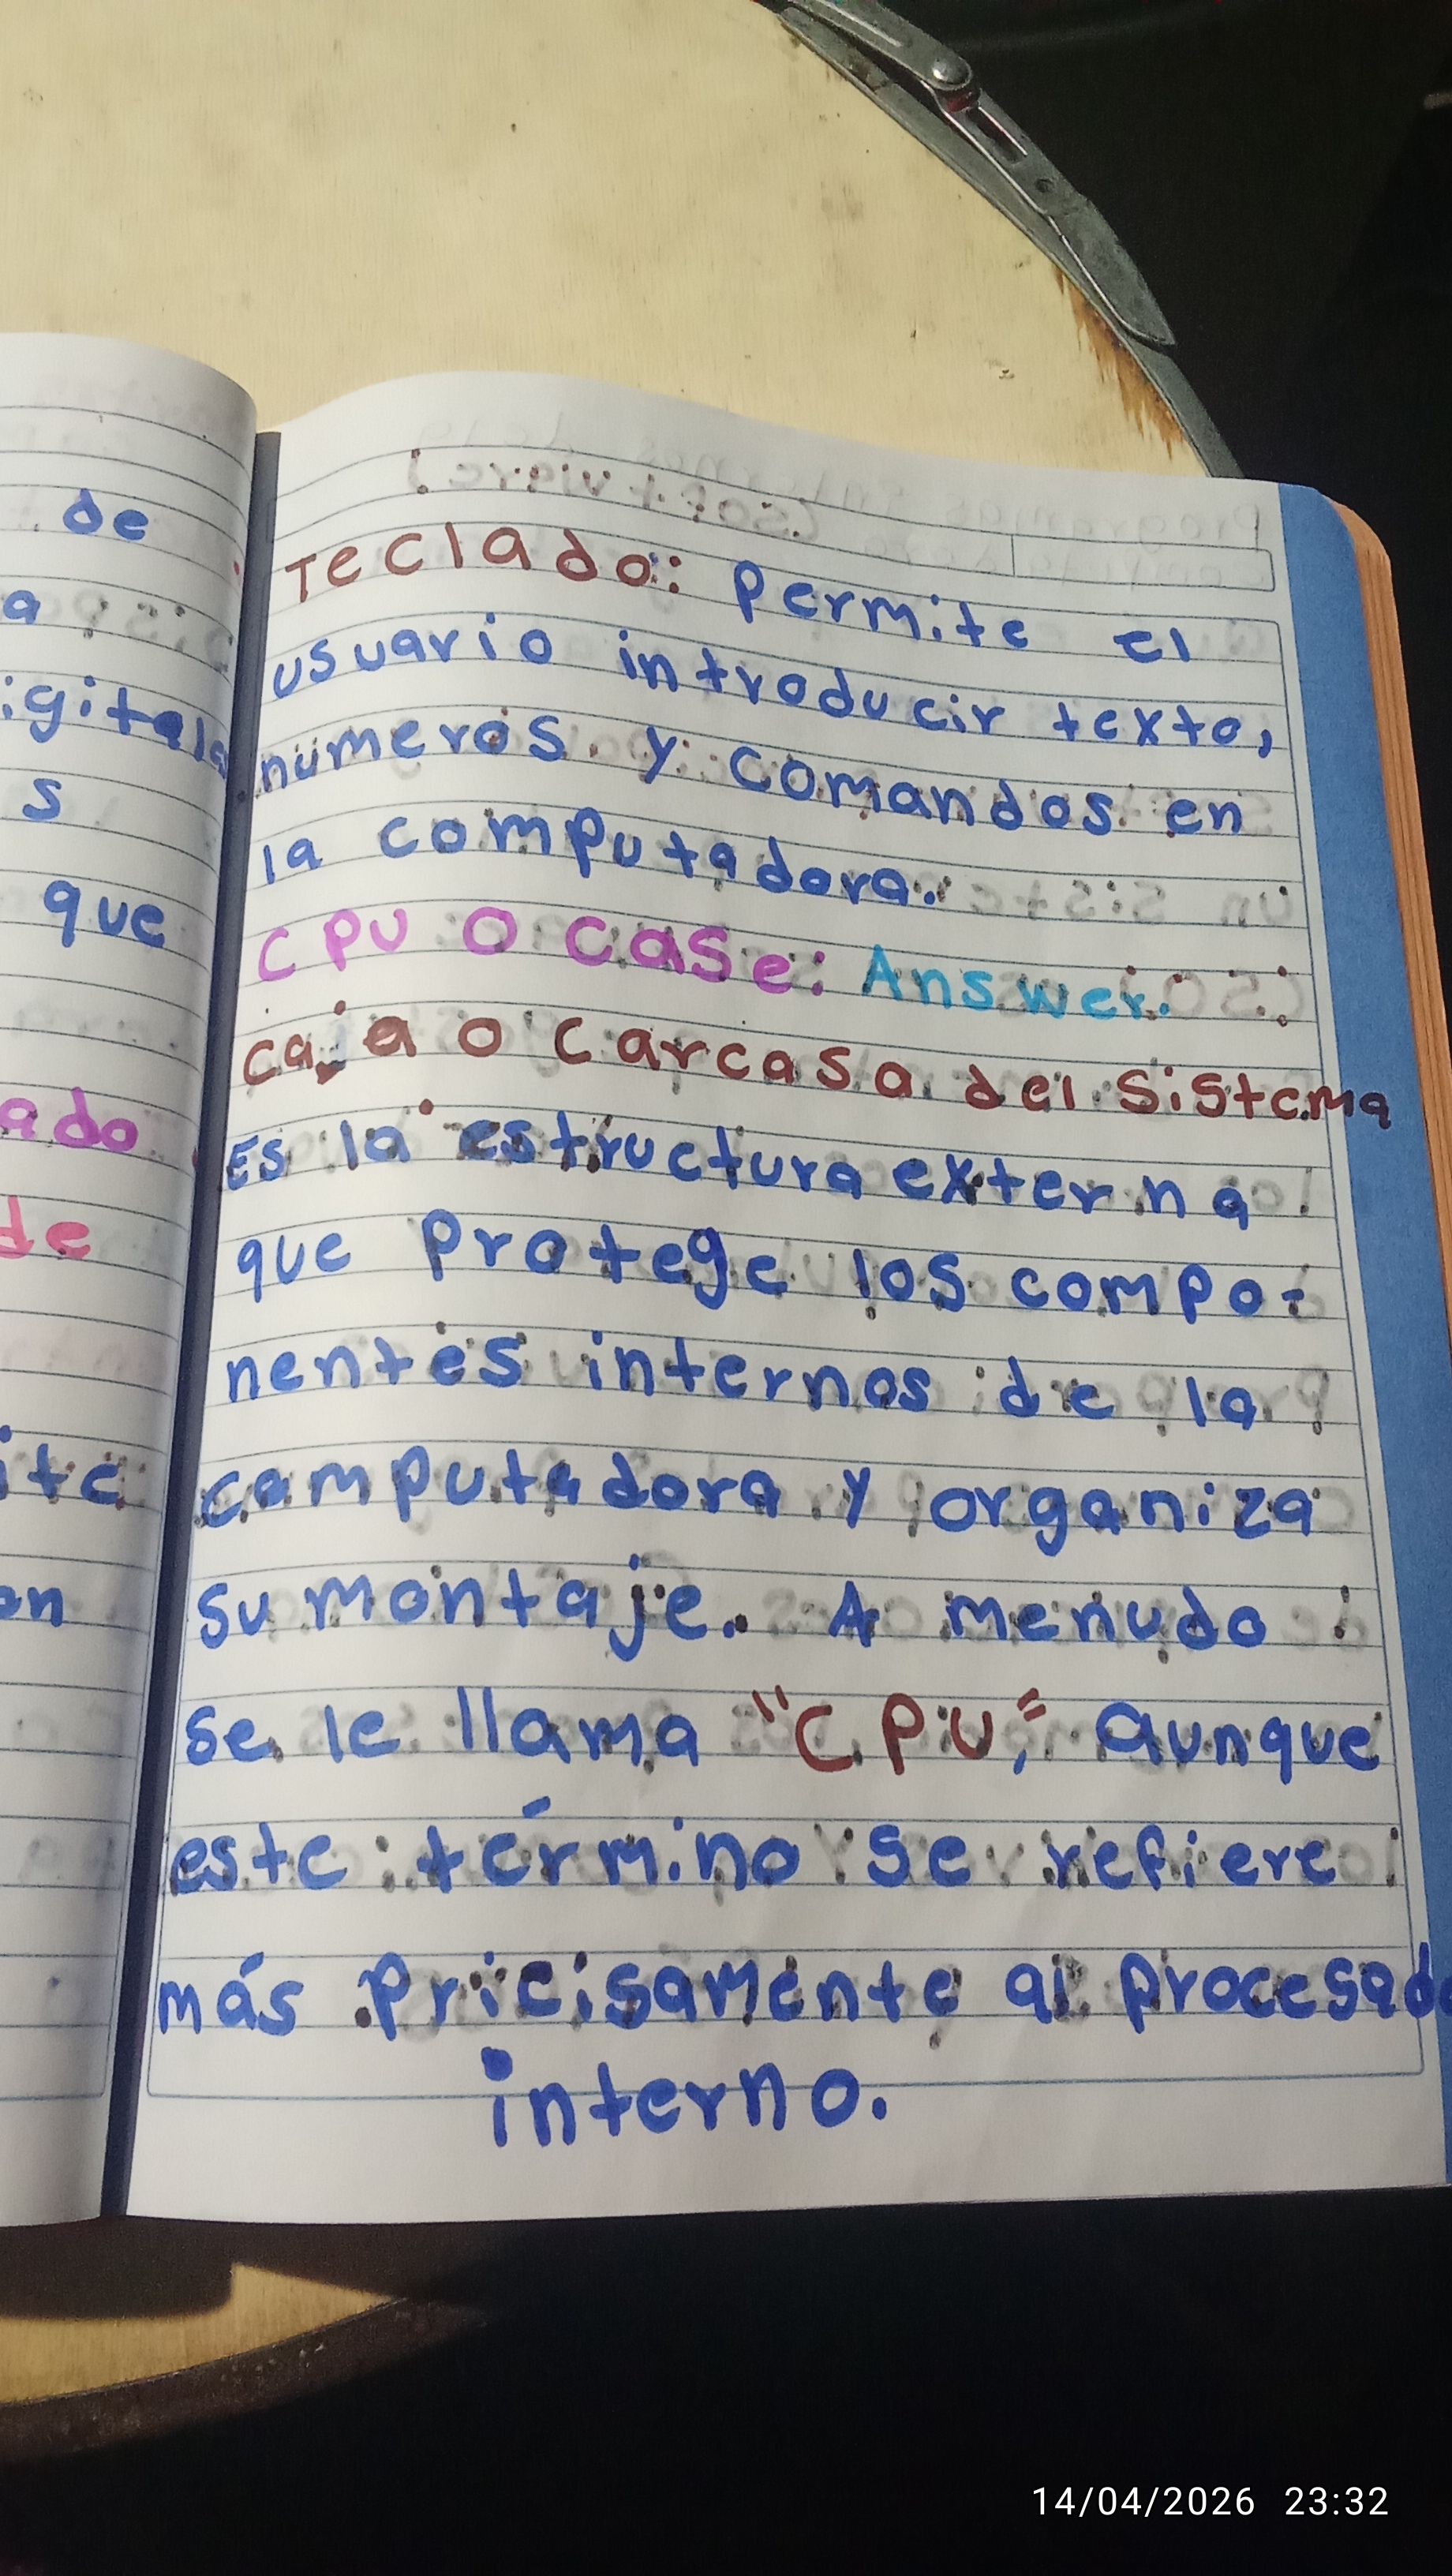 de
a
igitale
s
que
ado
de
ite
on
Teclado: Permite el
usuario introducir texto,
números y comandos en
la computadora.
CPU o case: Answer.
caja o carcasa del sistema
Es la estructura externa
que protege los compo-
nentes internos de la
computadora y organiza
su montaje. A menudo
se le llama "CPU," aunque
este término se refiere
más pricisamente al procesad
interno.
14/04/2026 23:32